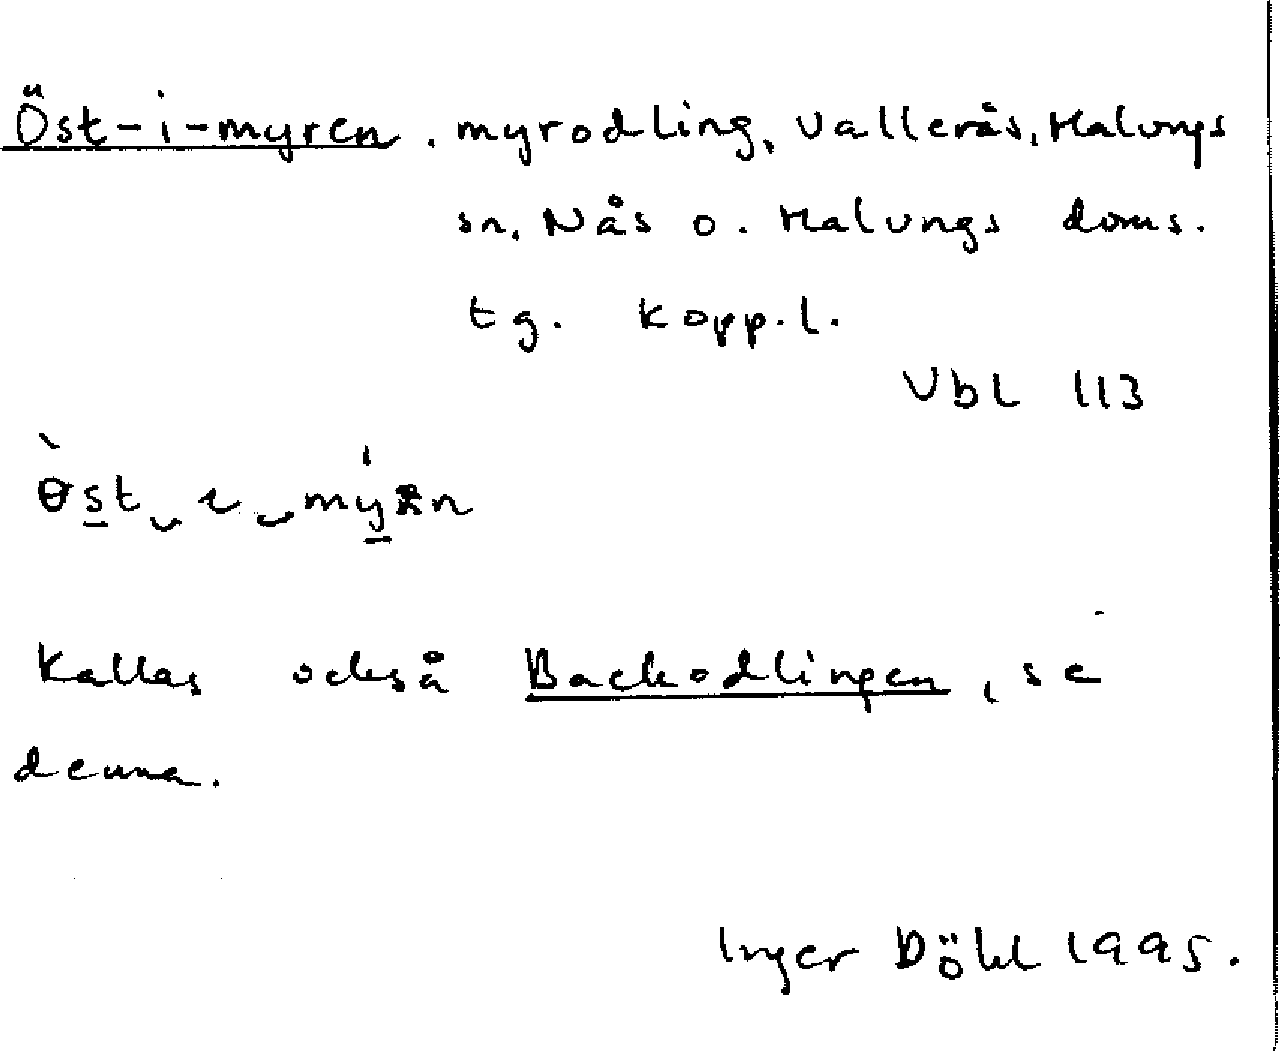 Öst-i-myren, myrodling, Vallerås, Malungs
sn, Nås o. Malungs doms.
tg. Kopp.l.
Vbl 113
ö̀st‿ı‿mýrn
Kallas också Backodlingen, se
denna.
Inger Döhl 1995.